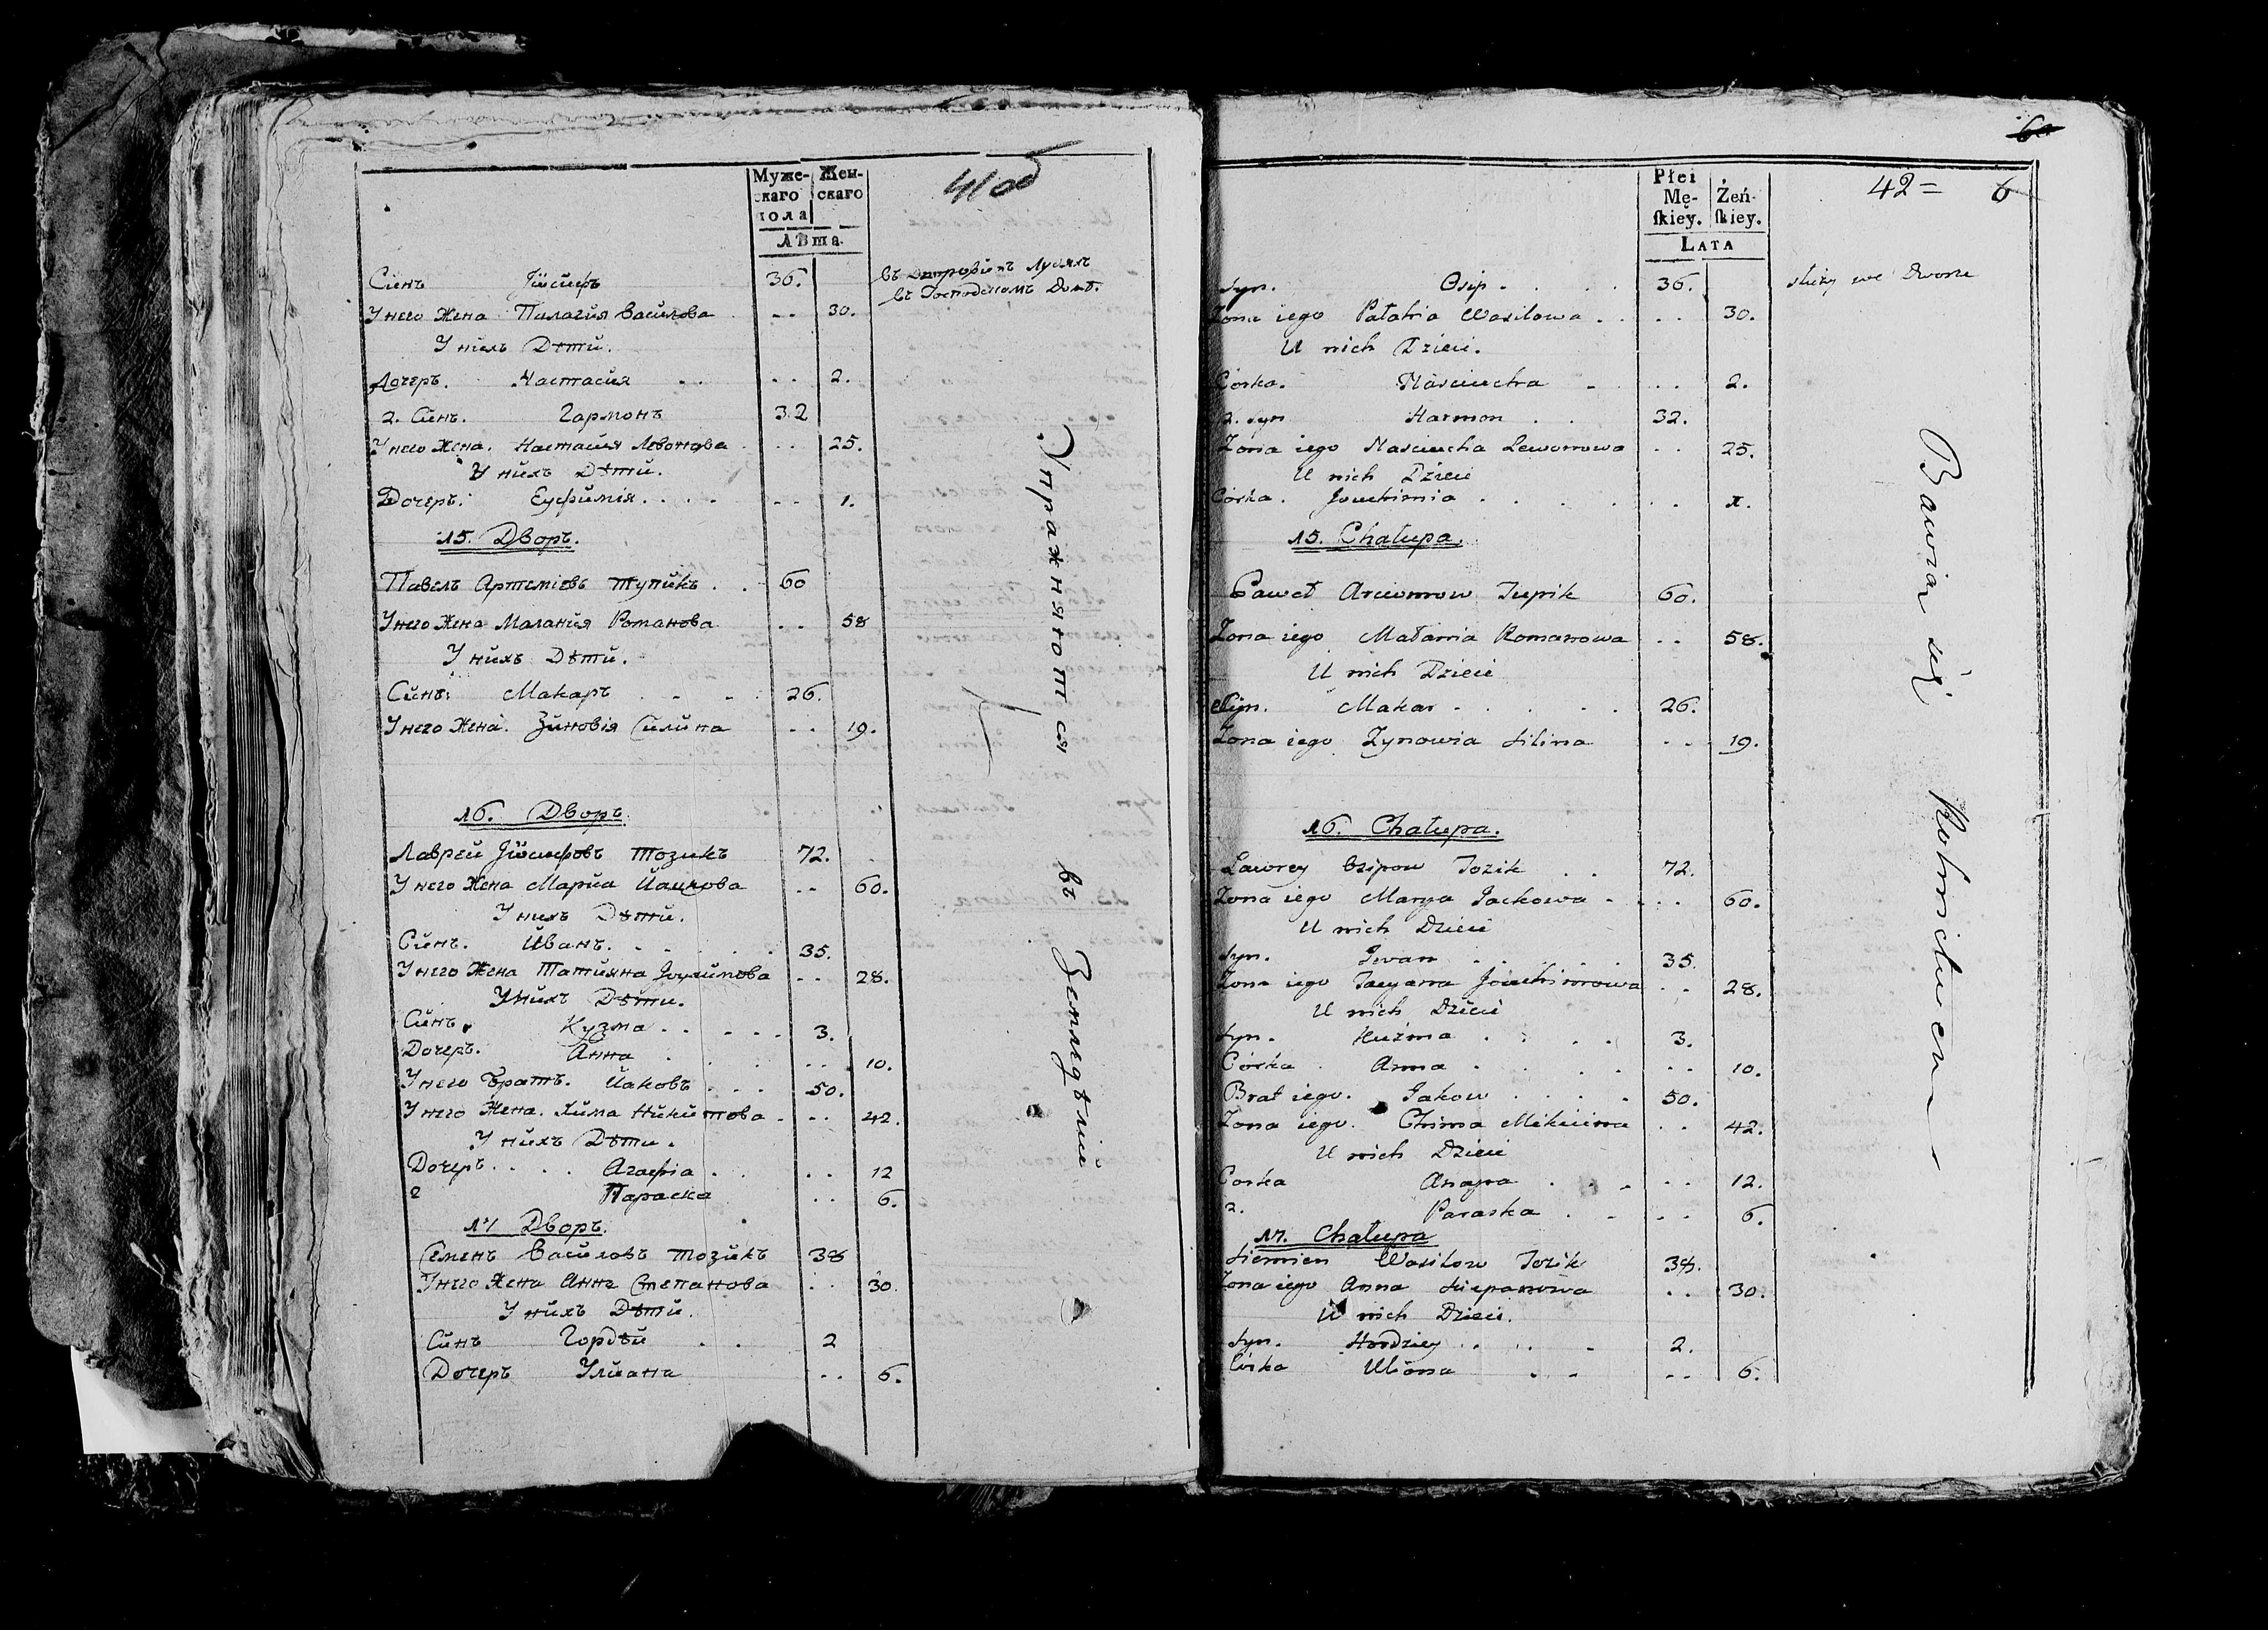 41об
Муже-
скаго
пола
Жен-
скаго
Лѣта
Синъ Іосифъ 36.
въ Господскомъ Домѣ.
У него Жена Пилагия Василова .. 30.
У нихъ Дѣти.
Дочеръ. Настасия .. 2.
2. Синъ. Гармонъ 32
У него Жена. Настасия Левонова .. 25.
У нихъ Дѣти.
Дочеръ: Еуфимія .... .. 1.
15. Дворъ.
Павелъ Артеміевъ Тупикъ .. 60
У него Жена Малания Романова .. 58
У нихъ Дѣти.
Синъ: Макаръ ... 26.
У него Жена: Зиновія Силина .. 19.
16. Дворъ.
Лаврей Іосифовъ Тозикъ 72.
У него Жена Мариа Йацкова .. 60.
У нихъ Дѣти.
Синъ. Иванъ. .... 35.
У него Жена Татияна .. 28.
У нихъ Дѣти.
Синъ. Кузма ..... 3.
Дочеръ. Анна ... .. 10.
У него Братъ. Йаковъ ... 50.
У него Жена. Хима Никитова . .. 42.
У нихъ Дѣти.
Дочеръ .... Агафіа .. .. 12
2 Параска .. 6.
17 Дворъ.
Семенъ Василовъ Тозикъ 38
У него Жена Анна Степанова .. 30.
У нихъ Дѣти.
Синъ Гордѣй .. 2
Дочеръ Улиана .. 6.
Упражняются въ Земледѣлие
42= 6
Płei
Mę-
ſkiey.
Żeń-
ſkiey.
Lata
Syn. Osip .... 36. służy we Dworze
Zona iego Pałahia Wasilowa .. .. 30.
U nich Dzieci.
Corka. Nasciucha - .. 2.
2. Syn Harmon .. 32.
Zona iego Nasciucha Lewonowa .. 25.
U nich Dzieci
Corka. Jouchimia .... .. 1.
15. Chałupa.
Paweł Arciomow Tupik 60.
Zona iego Małania Romanowa .. 58.
U nich Dzieci
Syn. Makar ..... 26.
Zona iego Zynowia Silina .. 19.
16. Chałupa.
Lawrey Osipow Tozik .. 72.
Zona iego Marya Jackowa . .. 60.
U nich Dzieci
Syn. Iwan ..... 35.
Zona iego Tacyana Jouchimowa .. 28.
U nich Dzieci
Syn. Kuźma .... 3.
Corka. Anna .... .. 10.
Brat iego. Jakow .... 50.
Zona iego. Chima Mikicina .. 42.
U nich Dzieci
Corka Ahapa ... .. 12.
2. Paraska .. .. 6.
17. Chałupa
Siemien Wasilow Tozik 38.
Zona iego Anna Sciepanowa .. 30.
U nich Dzieci.
Syn. Hordziey ... 2.
Corka Uliana .. .. 6.
Bawian się Rolnictwem